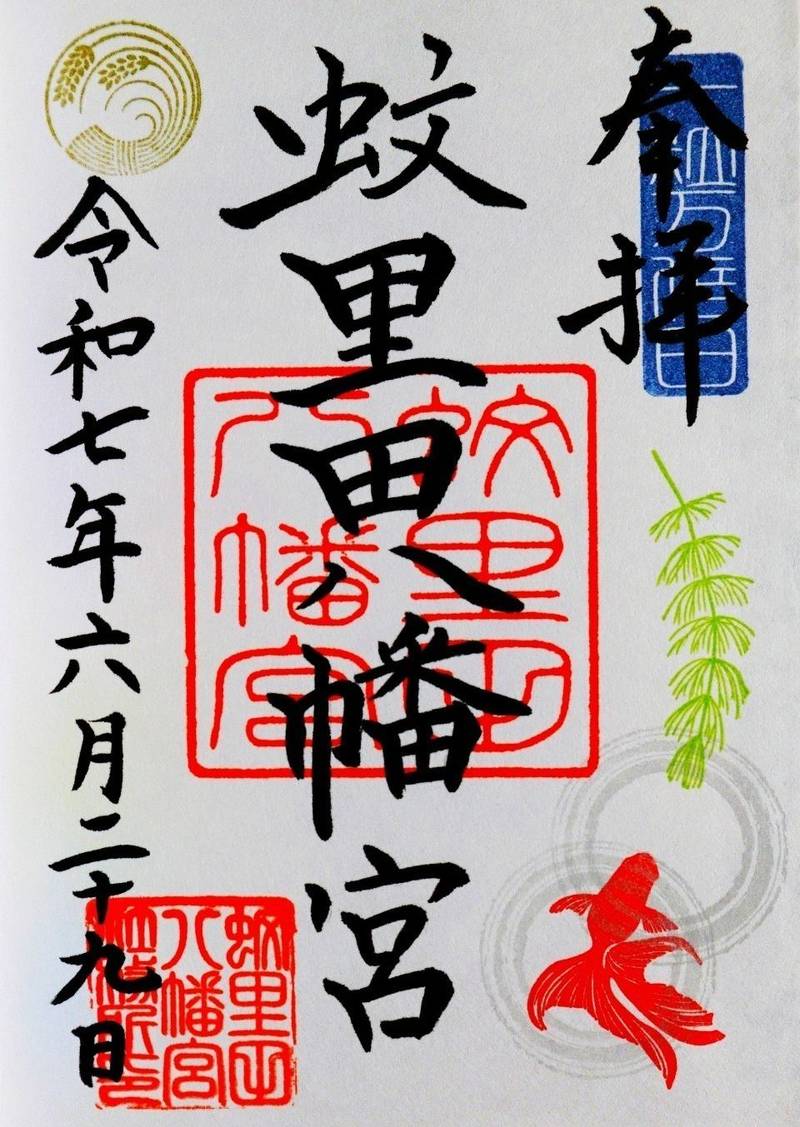 奉拝
一粒万倍日
蚊里田八幡宮
蚊里田
八幡宮
令和七年六月二十九日
蚊里田
八幡宮